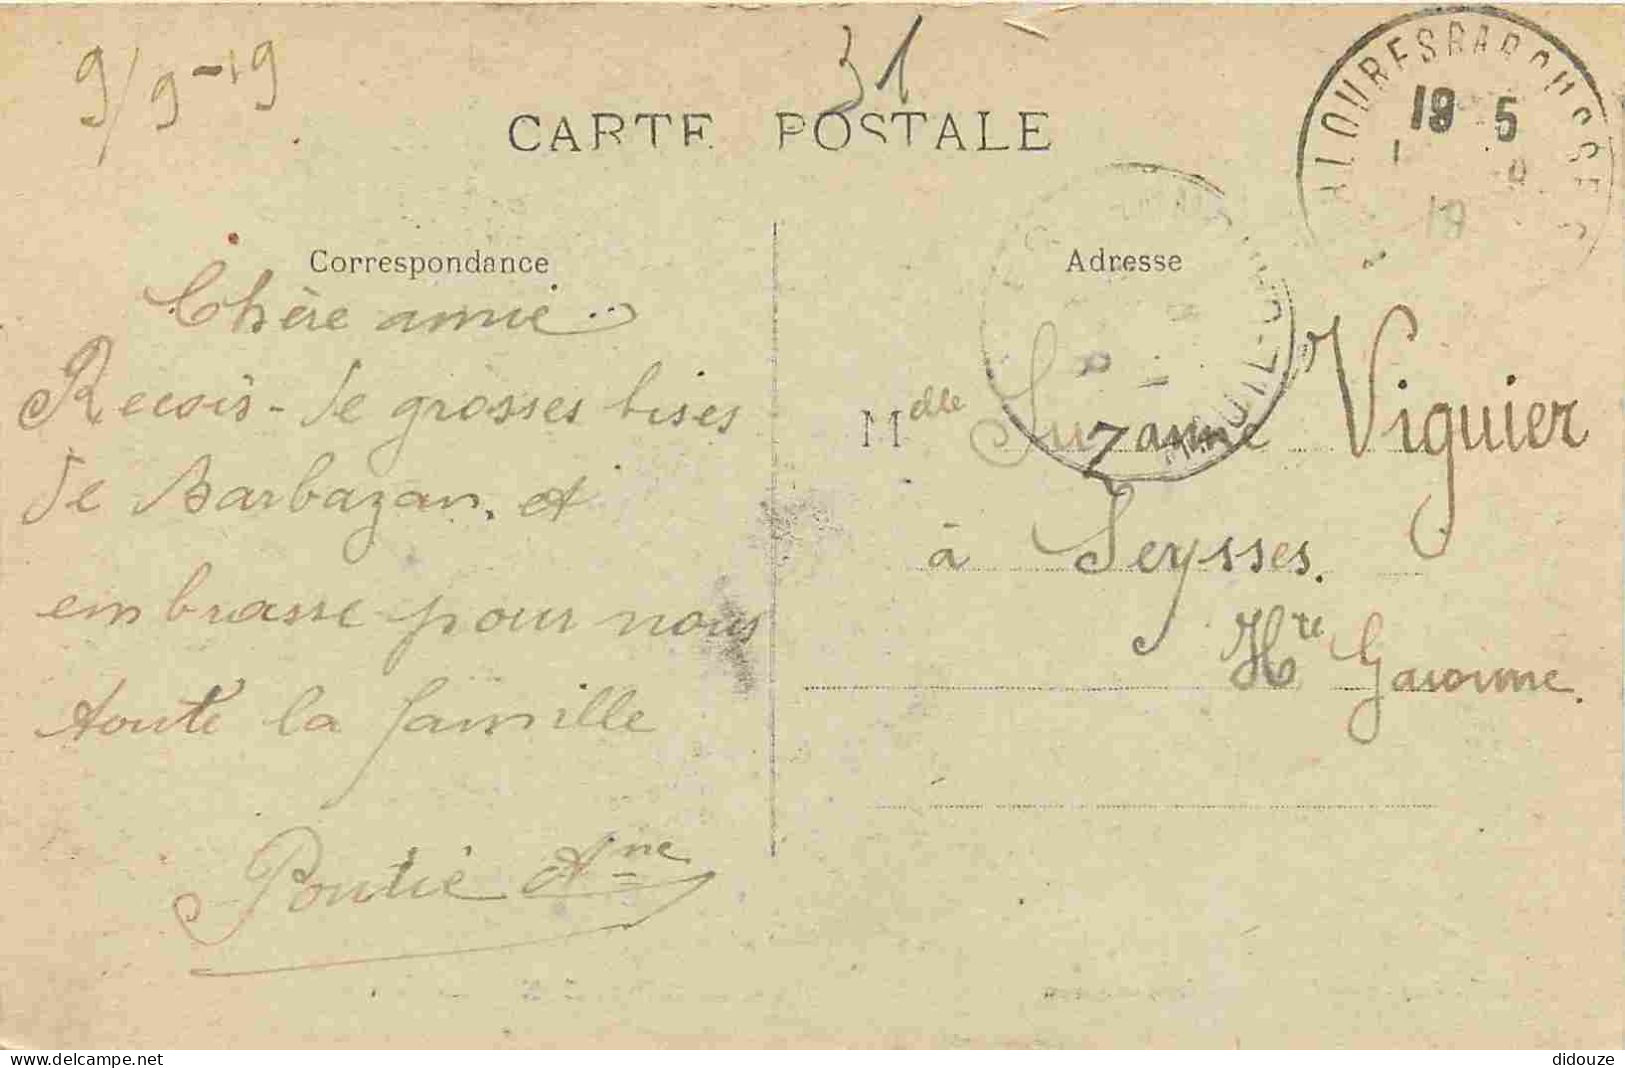 9/9-19
31
CARTE POSTALE
19 5
19
Correspondance
Adresse
Chère amie
Reçois-de grosses bises
de Barbazan. et
embrasse pour nous
toute la famille
Pontié Ane
Mdelle Suzanne Viguier
à Seysses.
Hte Garonne.
www.delcampe.net
didouze